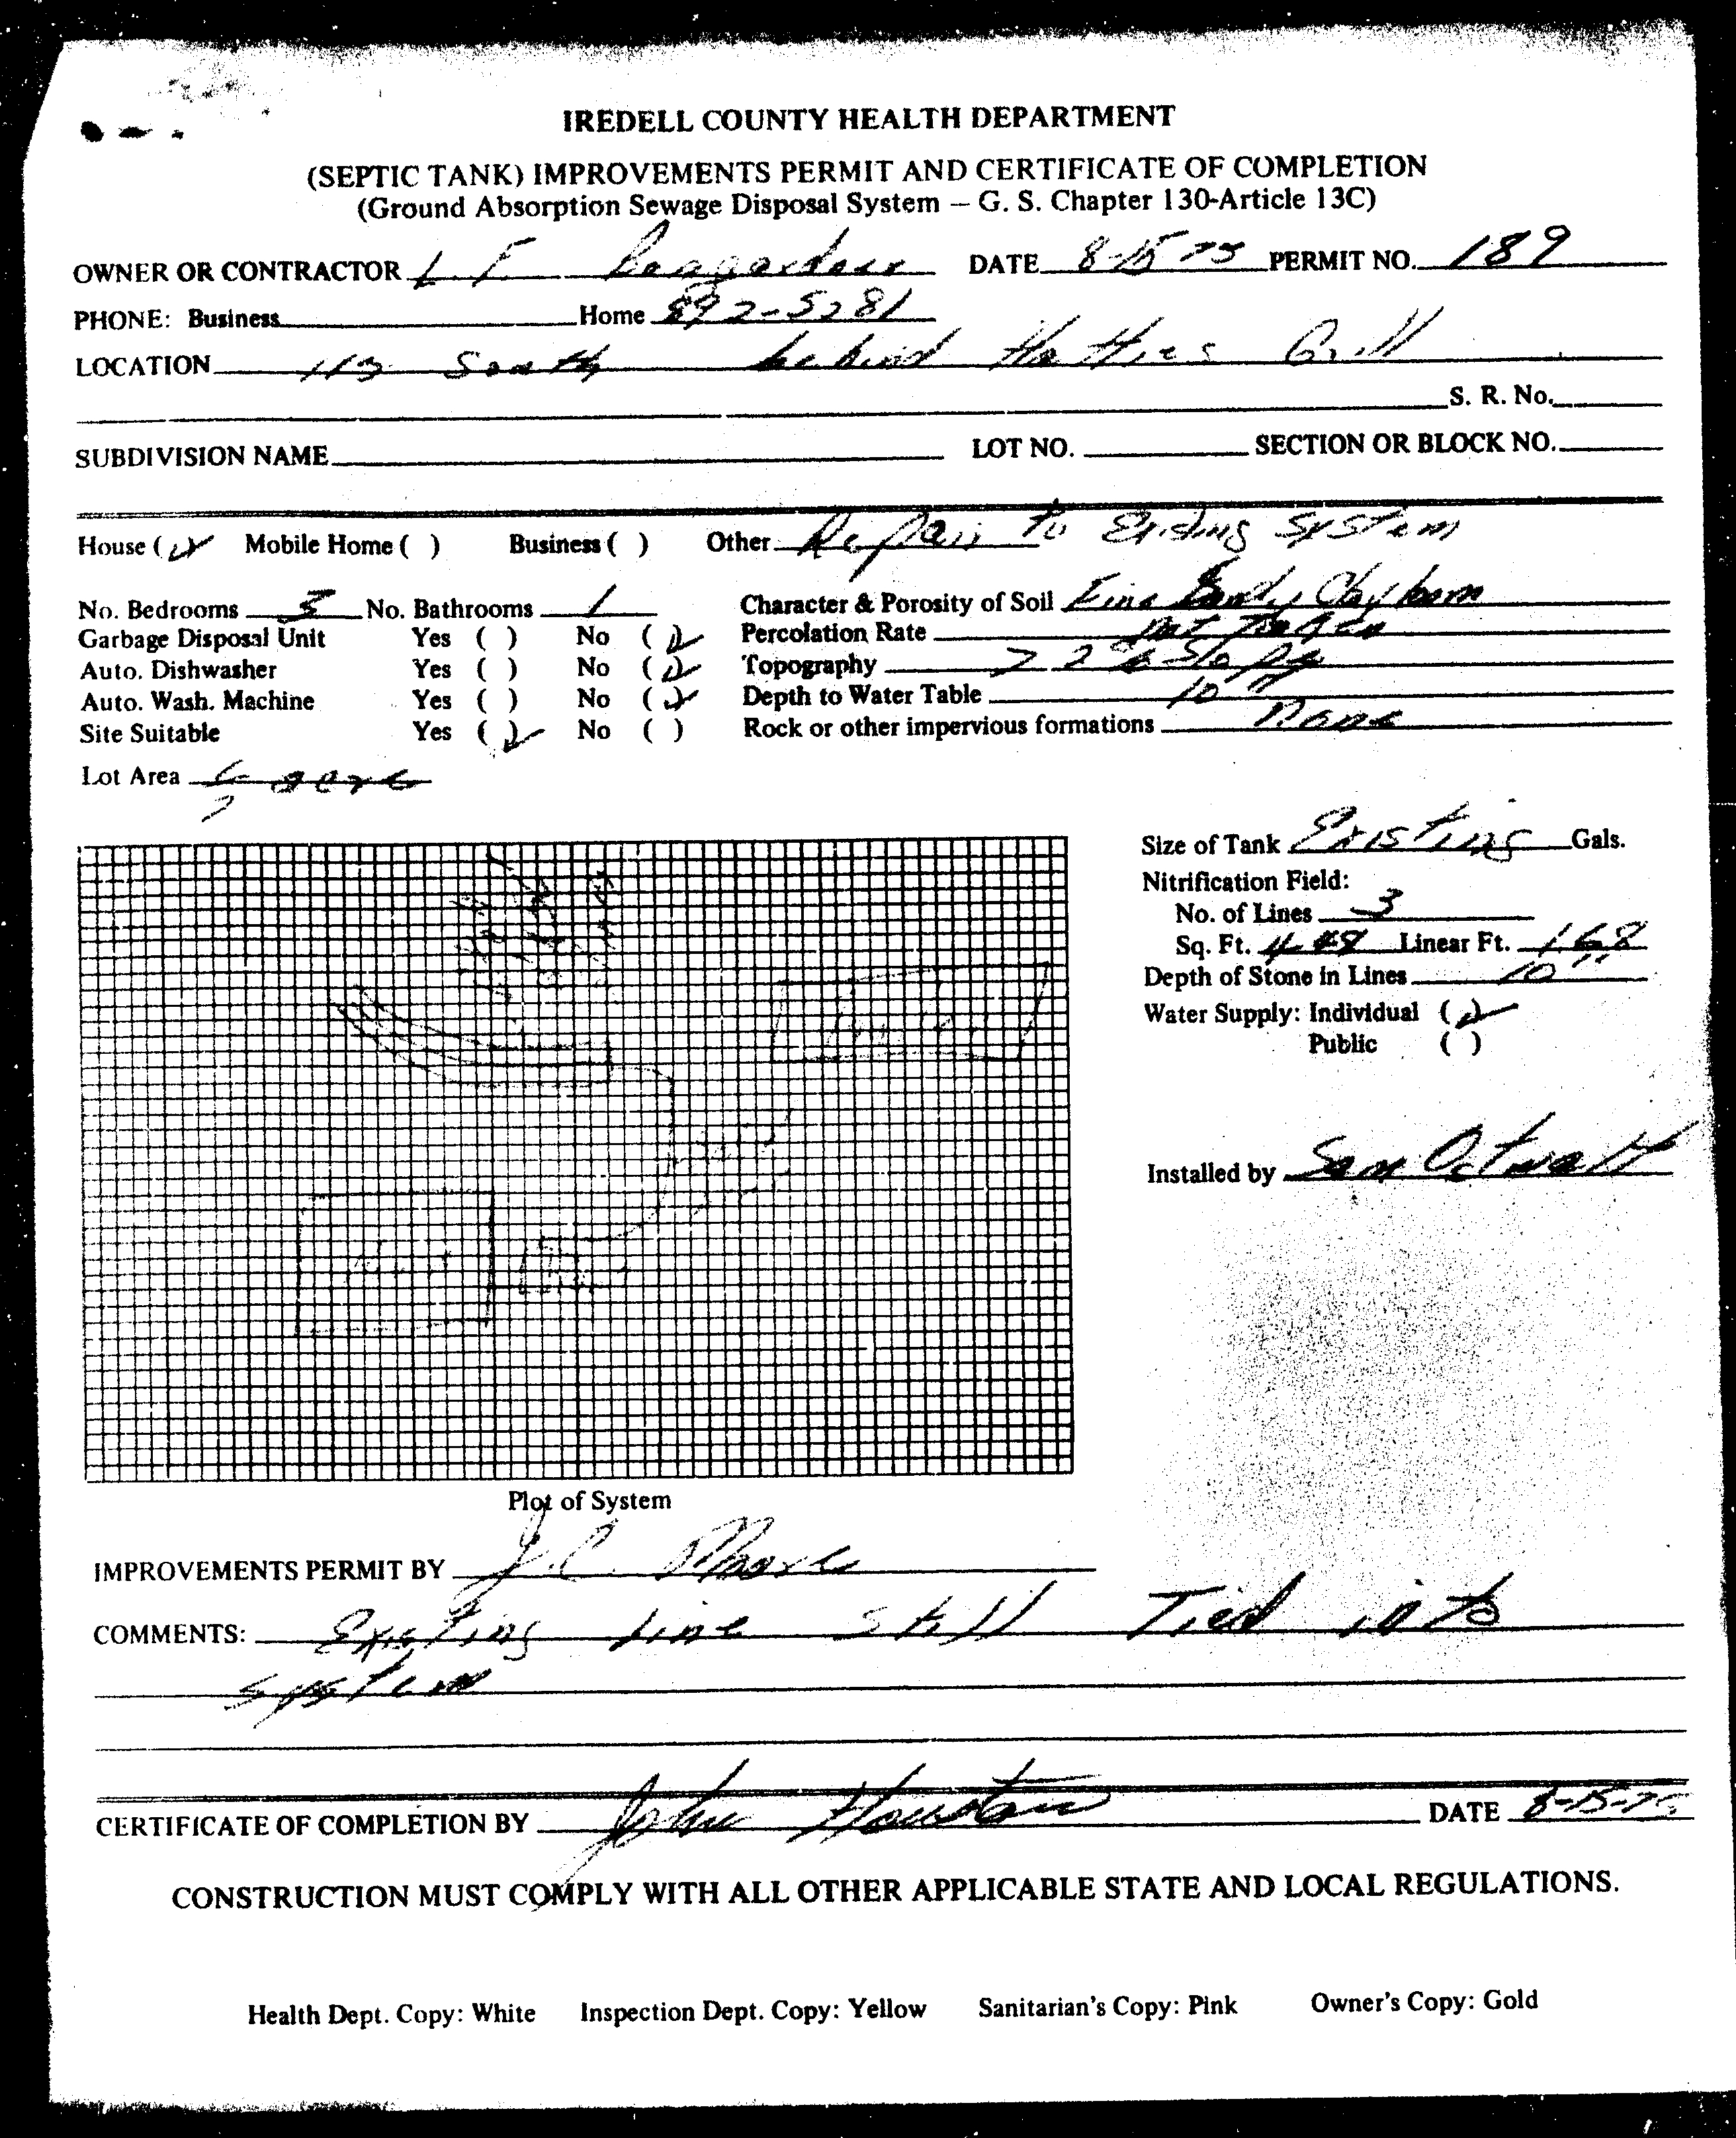 IREDELL COUNTY HEALTH DEPARTMENT
(SEPTIC TANK) IMPROVEMENTS PERMIT AND CERTIFICATE OF COMPLETION
(Ground Absorption Sewage Disposal System – G. S. Chapter 130-Article 13C)
OWNER OR CONTRACTOR L. F. DATE 8-15-75 PERMIT NO. 189
PHONE: Business Home 892-5281
LOCATION 115 South behind Hatties Grill
S. R. No.
SUBDIVISION NAME LOT NO. SECTION OR BLOCK NO.
House (✓) Mobile Home ( ) Business ( ) Other Repair to Existing System
No. Bedrooms 3 No. Bathrooms 1 Character & Porosity of Soil Fine Sandy Clay loam
Garbage Disposal Unit Yes ( ) No (✓) Percolation Rate Not Taken
Auto. Dishwasher Yes ( ) No (✓) Topography > 2% Slope
Auto. Wash. Machine Yes ( ) No (✓) Depth to Water Table 10'
Site Suitable Yes (✓) No ( ) Rock or other impervious formations None
Lot Area acre
Size of Tank Existing Gals.
Nitrification Field:
No. of Lines 3
Sq. Ft. Linear Ft. 168
Depth of Stone in Lines 10"
Water Supply: Individual (✓)
Public ( )
Installed by Sam Ostwalt
Plot of System
IMPROVEMENTS PERMIT BY J. C. Moore
COMMENTS: Existing Line Still Tied into
system
CERTIFICATE OF COMPLETION BY John Houston DATE 8-15-75
CONSTRUCTION MUST COMPLY WITH ALL OTHER APPLICABLE STATE AND LOCAL REGULATIONS.
Health Dept. Copy: White Inspection Dept. Copy: Yellow Sanitarian's Copy: Pink Owner's Copy: Gold